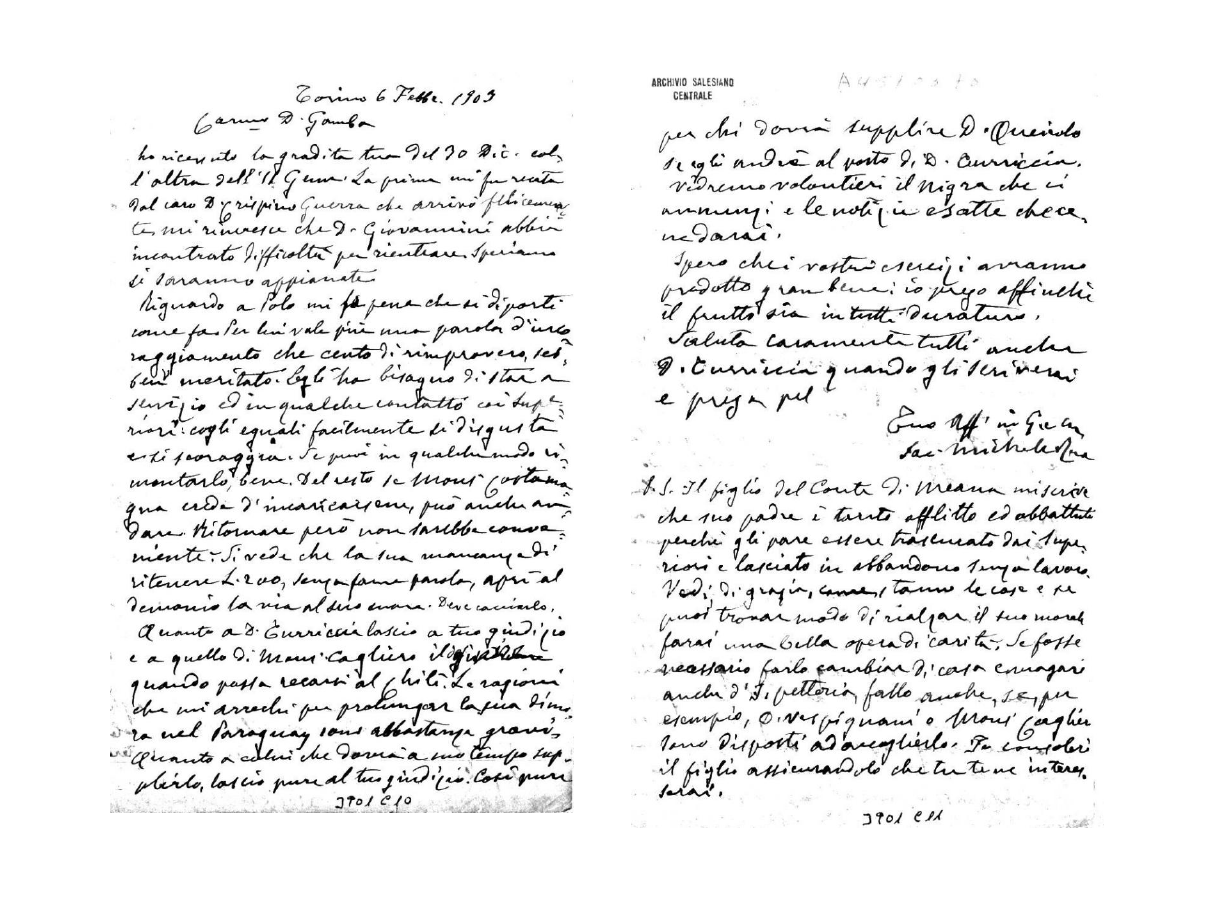 Torino 6 Febbr. 1903
Carmo D. Gamba
ho ricevuto la gradita tua del 30 Dic. col-
l'altra dell'11 Genn. La prima mi fu recata
dal caro D. Crispino Guerra che arrivò felicemen-
te, mi rincresce che D. Giovannini abbia
incontrato difficoltà per rientrare. Speriamo
si saranno appianate.
Riguardo a Polo mi fa pena che si diporti
come fa. Per lui vale più una parola d'inco
raggiamento che cento di rimprovero, seb-
ben meritato. Egli ha bisogno di star a
servizio ed in qualche contatto coi supe-
riori: cogli eguali facilmente si disgusta
e si scoraggia. Se puoi in qualche modo ri-
montarlo, bene. Del resto se Mons. Costama
gna creda d'incaricarsene, può anche an-
dare. Ritornare però non sarebbe conve-
niente. Si vede che la sua mancanza di
ritenere L. 200, senza farne parola, aprì al
demonio la via al suo cuore. Deve cacciarlo.
Quanto a D. Turriccia lascio a tuo giudizio
e a quello di Mons. Cagliero il
quando possa recarsi al Chilì. Le ragioni
che mi arrechi per prolungar la sua dimo-
ra nel Paraguay sono abbastanza gravi.
Quanto a colui che dovrà a suo tempo sup-
plirlo, lascio pure al tuo giudizio. Così pure
3901 C10
ARCHIVIO SALESIANO
CENTRALE
per chi dovrà supplire D. Queirolo
se egli andrà al posto di D. Turriccia.
Vedremo volontieri il Nigra che ci
annunzi e le notizie esatte che ce
ne darai.
Spero che i vostri esercizi avranno
prodotto gran bene: io prego affinchè
il frutto sia in tutti duraturo.
Saluta caramente tutti anche
D. Turriccia quando gli scriverai
e prega pel
Tuo Aff. in G. e M.
Sac. Michele Rua
P.S. Il figlio del Conte di Meana mi scrive
che suo padre è tanto afflitto ed abbattuto
perchè gli pare essere trascurato dai Supe-
riori e lasciato in abbandono senza lavoro.
Vedi, di grazia, come stanno le cose e se
puoi trovar modo di rialzar il suo morale
farai una bella opera di carità. Se fosse
necessario farlo cambiar di casa e magari
anche d'Ispettoria, fallo anche, se, per
esempio, D. Vespignani o Mons. Cagliero
sono disposti ad accoglierlo. Fa consolar
il figlio assicurandolo che tu te ne interes-
serai.
3901 C11